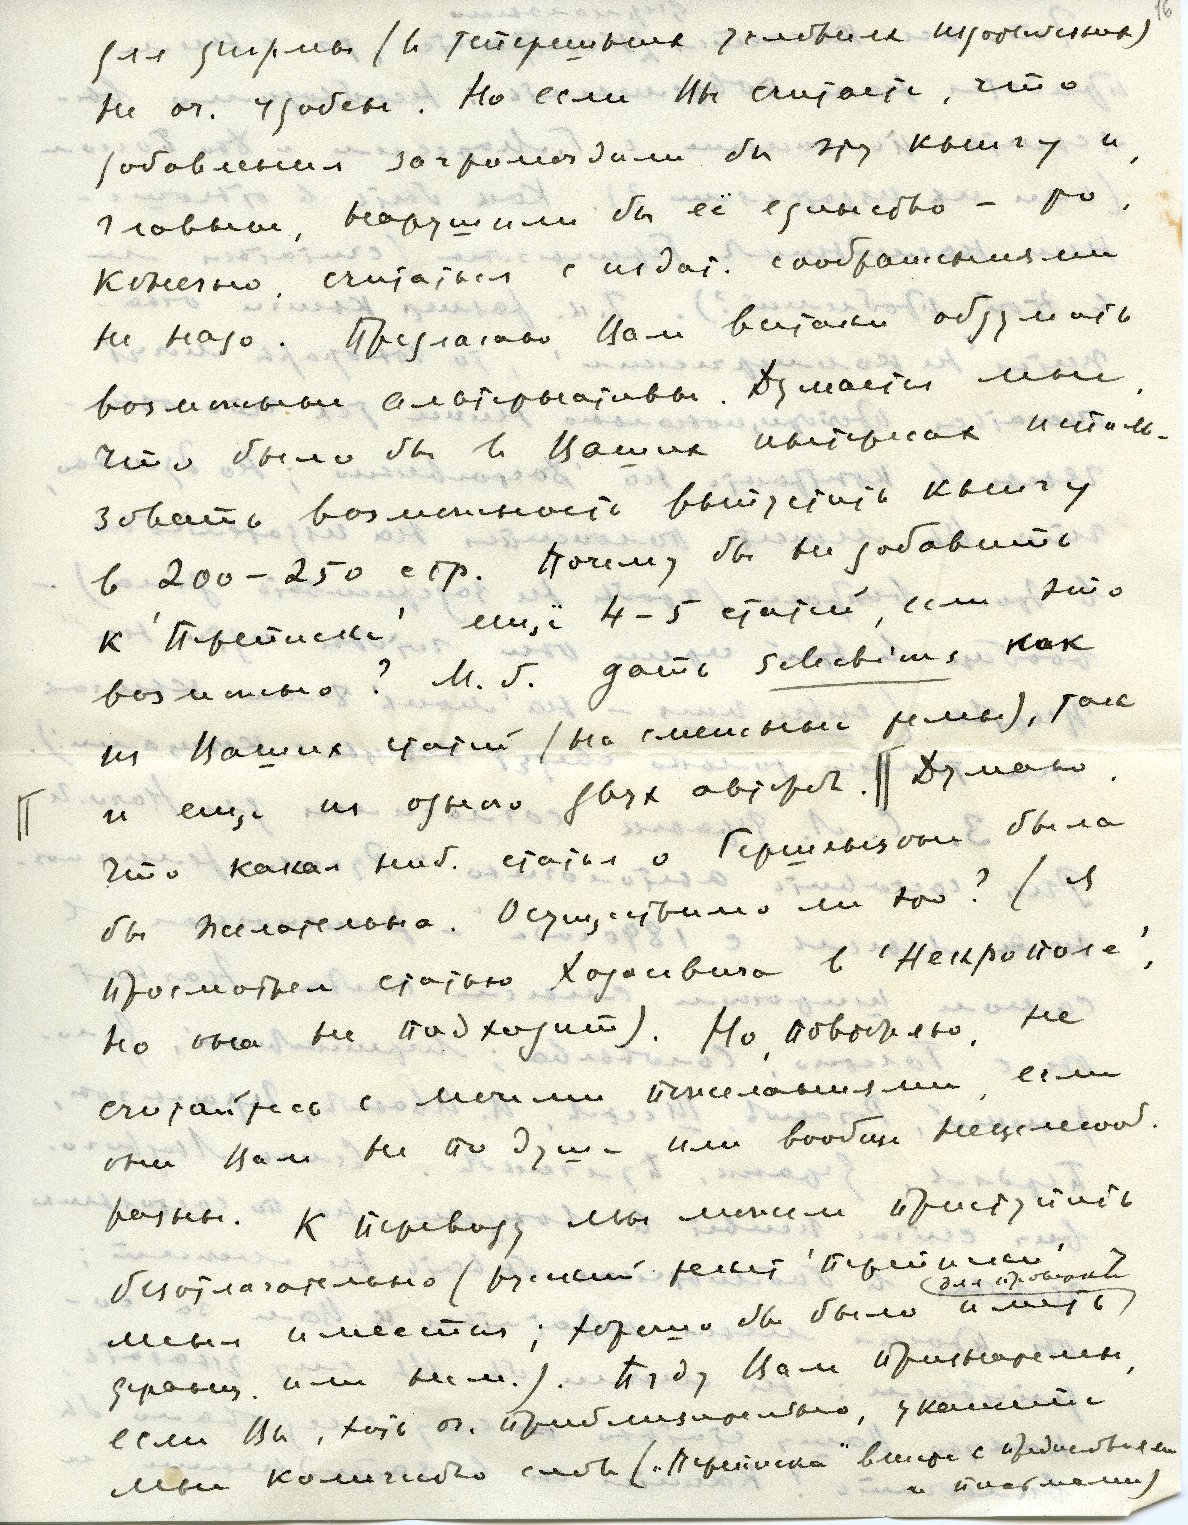 16
для фирмы (в теперешних условиях издательских)
не оч. удобен. Но если Вы считаете, что
добавления загромоздили бы эту книгу и,
главное, нарушили бы её единство – то,
конечно, считаться с издат. соображениями
не надо. Предлагаю Вам всетаки обдумать
возможные альтернативы. Думается мне,
что было бы в Ваших интересах исполь-
зовать возможность выпустить книгу
в 200–250 стр. Почему бы не добавить
к 'Переписке' ещё 4–5 статей, если это
возможно? М. б. дать selections как
из Ваших статей (на смежные темы), так
и еще из одного двух авторов. Думаю,
что какая ниб. статья о Гершензоне была
бы желательна. Осуществимо ли это? (Я
просмотрел статью Ходасевича в 'Некрополе',
но она не подходит). Но, повторяю, не
считайтесь с моими пожеланиями, если
они Вам не по душе или вообще нецелесооб-
разны. К переводу мы можем приступить
безотлагательно (русский текст 'Переписки' у
меня имеется; хорошо бы было иметь (для проверки)
франц. или нем.). Буду Вам признателен,
если Вы, хоть оч. приблизительно, укажите
мне количество слов ("Переписка" вместе с предисловиями
и письмами)